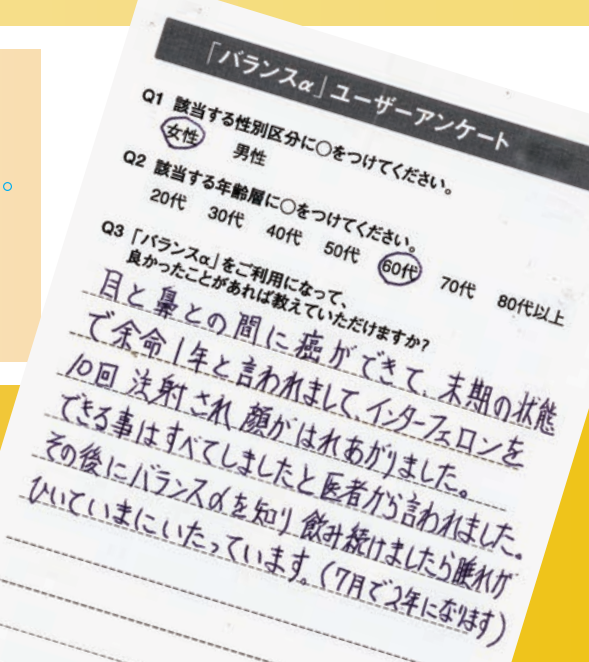 「バランスα」ユーザーアンケート
Q1 該当する性別区分に○をつけてください。
女性 男性
Q2 該当する年齢層に○をつけてください。
20代 30代 40代 50代 60代 70代 80代以上
Q3「バランスα」をご利用になって、
良かったことがあれば教えていただけますか?
目と鼻との間に癌ができて、末期の状態
で余命1年と言われまして、インターフェロンを
10回注射され顔がはれあがりました。
できる事はすべてしましたと医者から言われました。
その後にバランスαを知り飲み続けましたら腫れが
ひいていまにいたっています。(7月で2年になります)
。